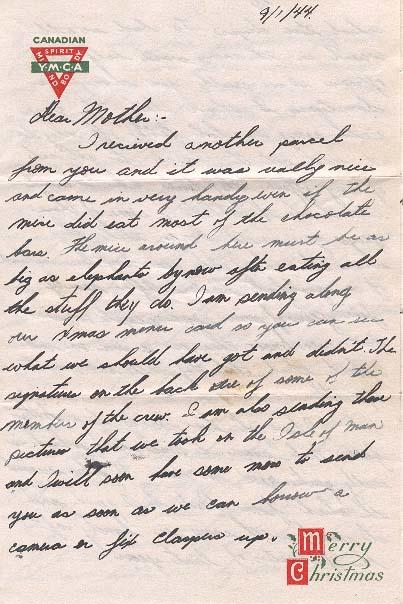 9/1/44.
CANADIAN
SPIRIT
MIND
BODY
Y·M·C·A
Dear Mother:-
I recieved another parcel
from you and it was really nice
and came in very handy even if the
mice did eat most of the chocolate
bars. The mice around here must be as
big as elephants by now after eating all
the stuff they do. I am sending along
our Xmas menu card so you can see
what we should have got and didn't. The
signatures on the back are of some of the
members of the crew. I am also sending those
pictures that we took on the Isle of Man
and I will soon have some more to send
you as soon as we can borrow a
camera or fix Claspers up.
Merry
Christmas